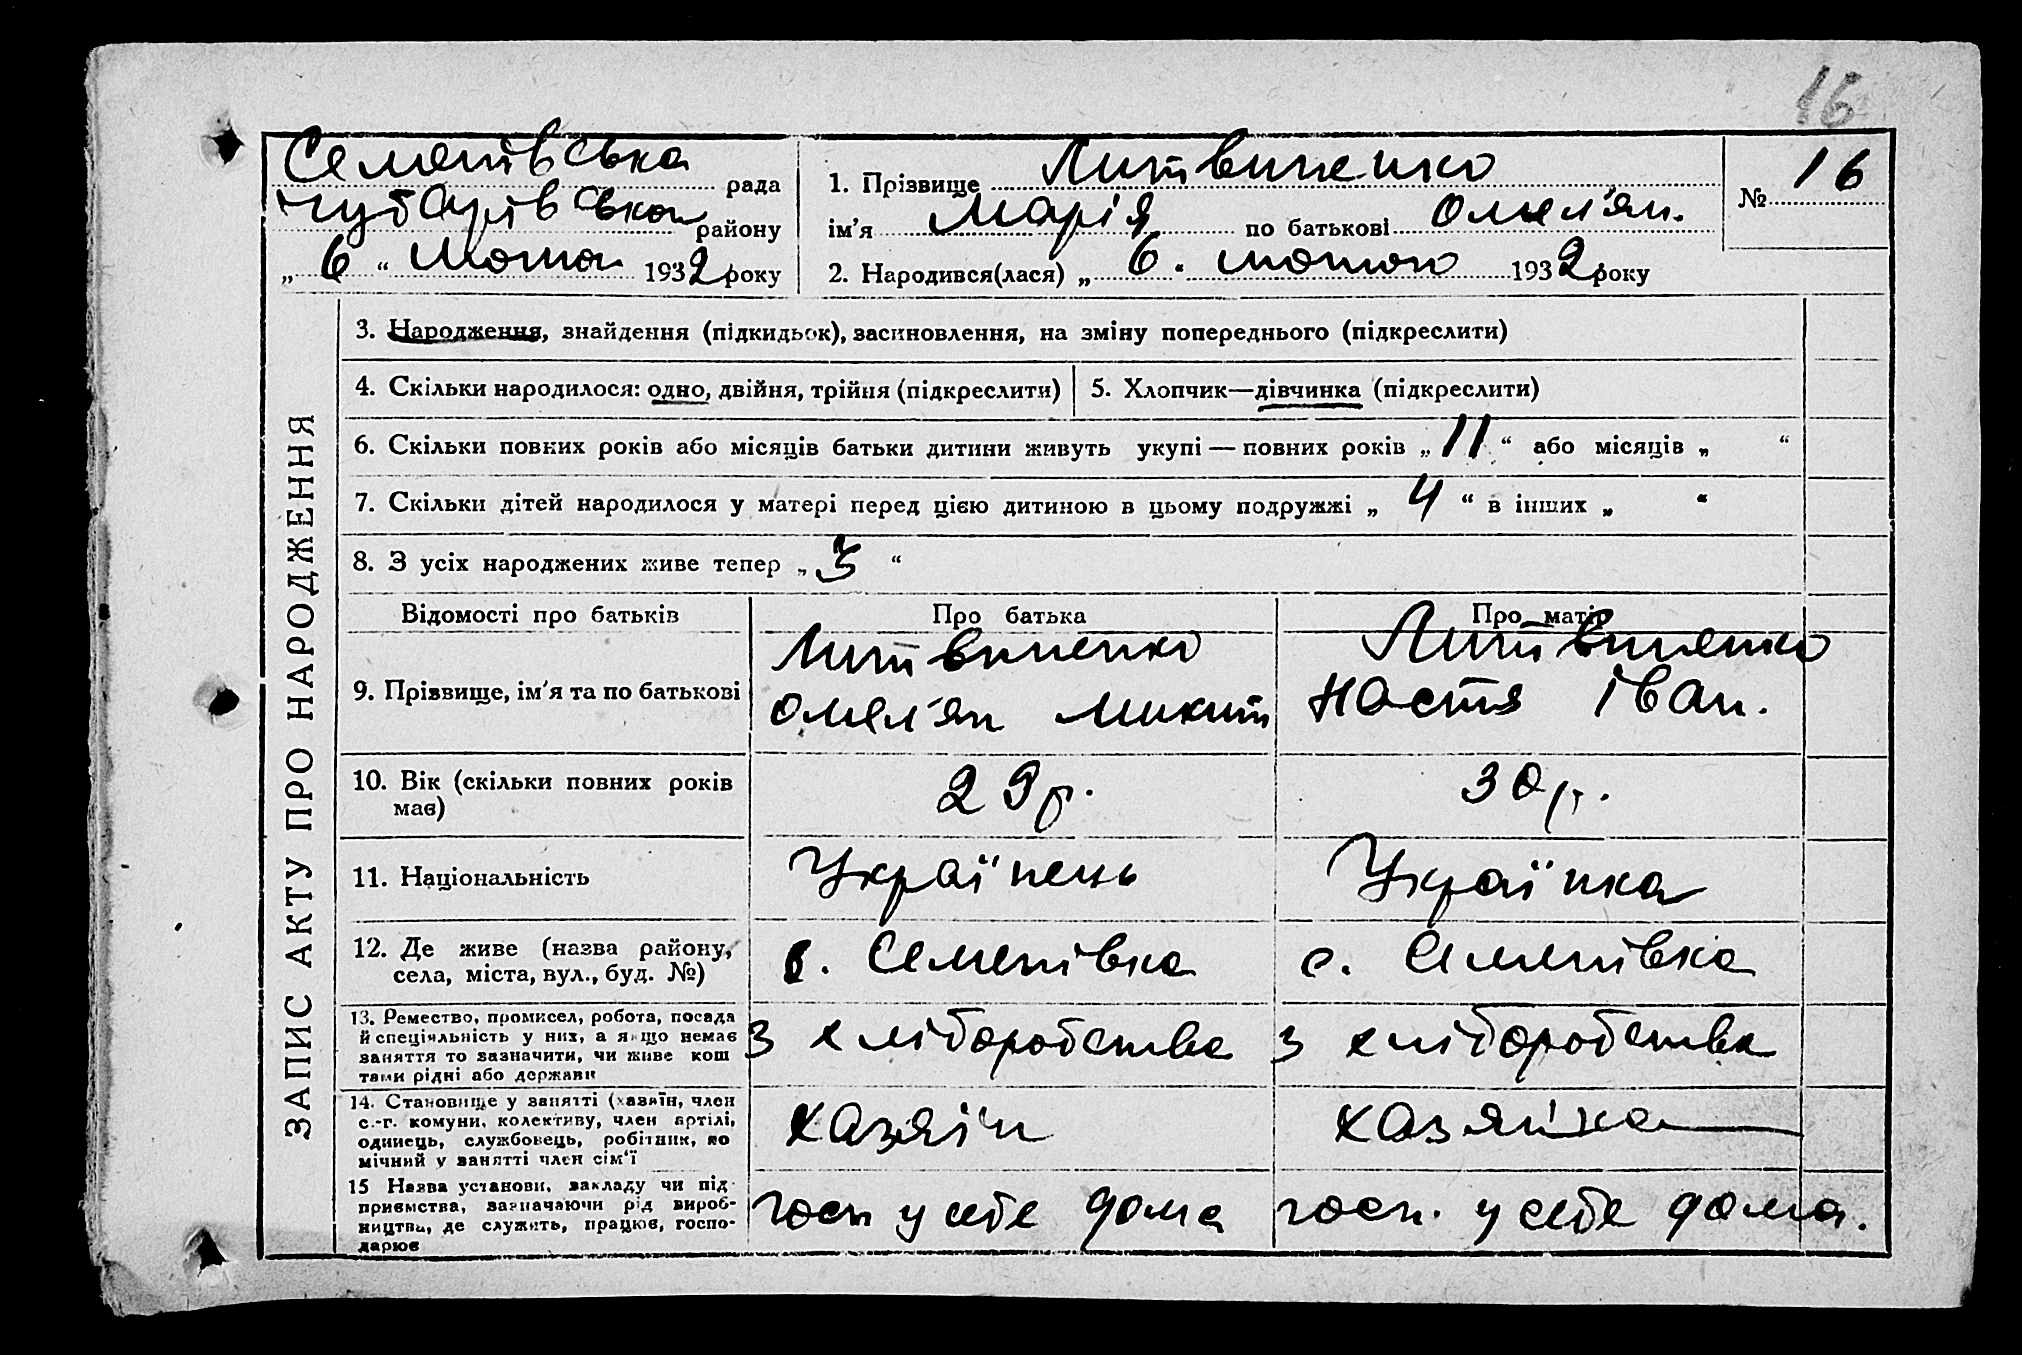 16
Семенівська рада
Чубарівська району
„ 6 “ лютого 1932 року
1. Прізвище Литвиненко
ім'я Марія по батькові Омел'ян.
2. Народився(лася) „ 6. лютого 1932 року
№ 16
ЗАПИС АКТУ ПРО НАРОДЖЕННЯ
3. Народження, знайдення (підкидьок), засиновлення, на зміну попереднього (підкреслити)
4. Скільки народилося: одно, двійня, трійня (підкреслити)
5. Хлопчик—дівчинка (підкреслити)
6. Скільки повних років або місяців батьки дитини живуть укупі — повних років „ 11 “ або місяців „ “
7. Скільки дітей народилося у матері перед цією дитиною в цьому подружжі „ 4 “ в інших „ “
8. З усіх народжених живе тепер „ 3 “
Відомості про батьків Про батька Про матір
9. Прізвище, ім'я та по батькові
Литвиненко
Омел'ян Микит
Литвиненко
Настя Іван.
10. Вік (скільки повних років
має)
29 р. 30 р.
11. Національність Українець Українка
12. Де живе (назва району,
села, міста, вул., буд. №)
с. Семенівка с. Семенівка
13. Ремество, промисел, робота, посада
й спеціяльність у них, а якщо немає
заняття то зазначити, чи живе кош
тами рідні або держави
з хліборобства з хліборобства
14. Становище у занятті (хазяїн, член
с.-г. комуни, колективу, член артілі,
одинець, службовець, робітник, по
мічний у занятті член сім'ї
хазяїн хазяйка
15 Назва установи, закладу чи під
приємства, зазначаючи рід вироб-
ництва, де служить, працює, госпо-
дарює
госп у себе дома госп. у себе дома.